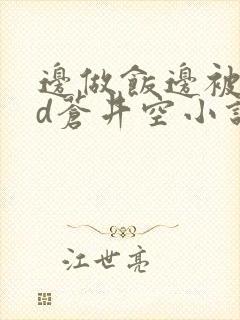 邊做飯邊被
d蒼井空小說
江世亮